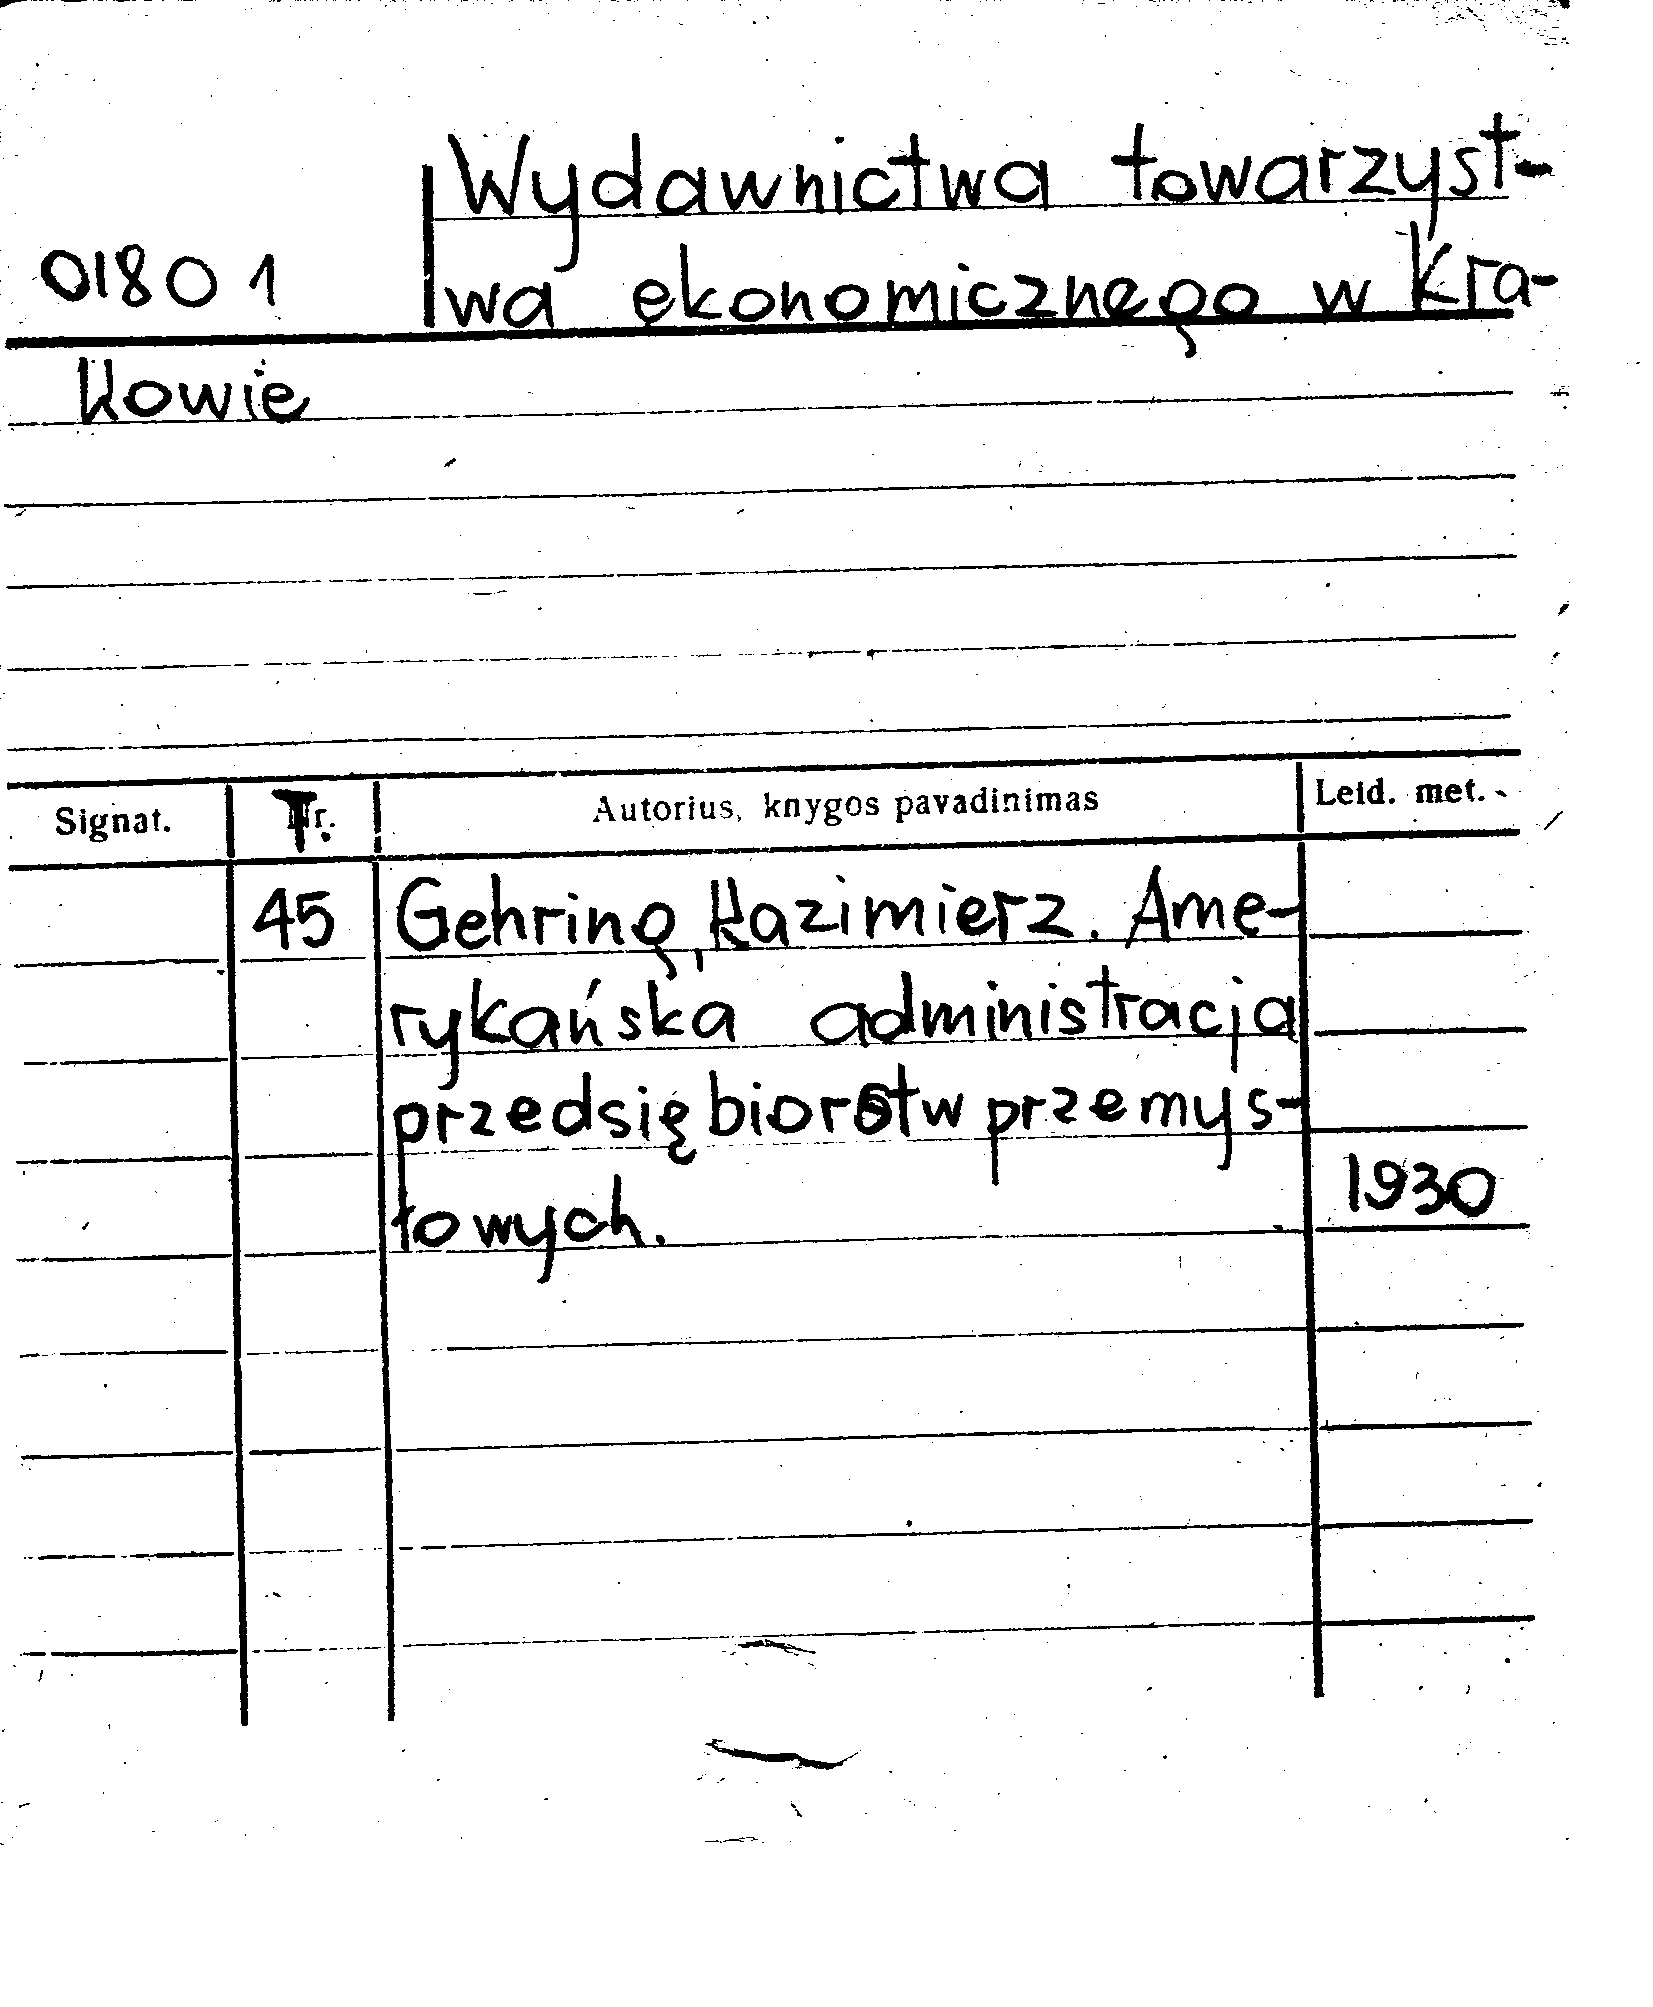 Wydawnictwa towarzyst-
01801 wa ekonomicznego w Kra-
kowie
Signat. T. Autorius, knygos pavadinimas Leid. met.
45 Gehring, Kazimierz. Ame-
rykańska administracja
przedsiębiorstw przemys-
łowych. 1930